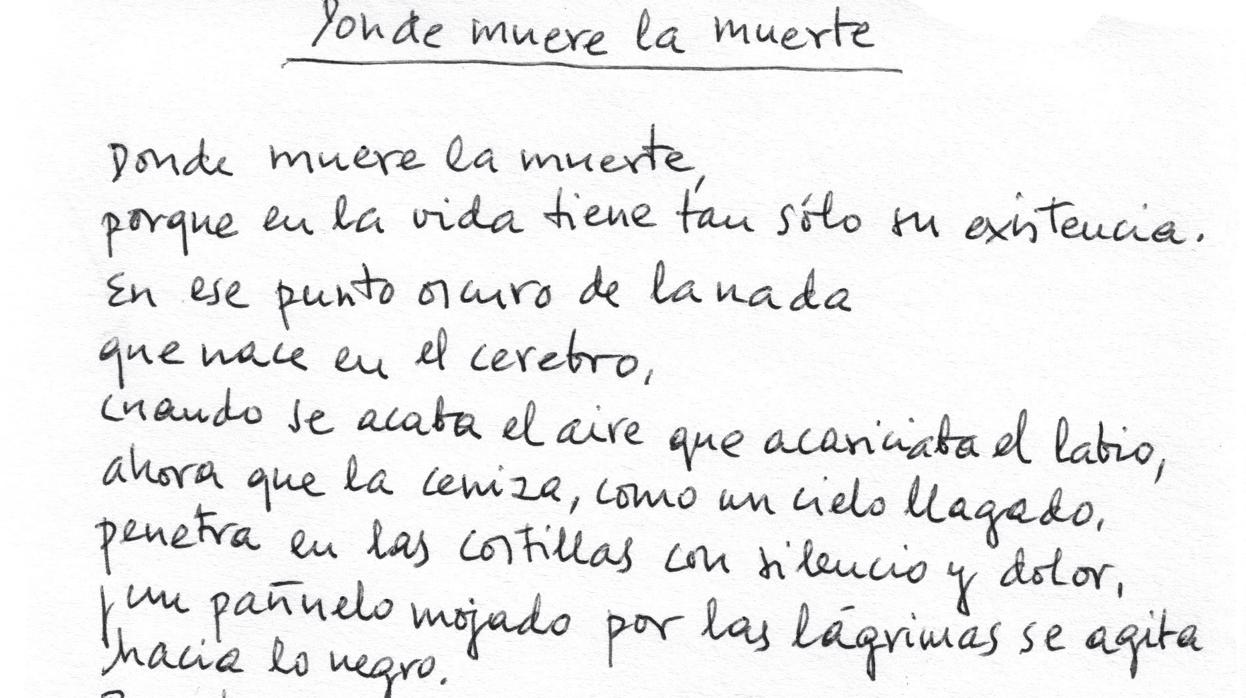 Donde muere la muerte
Donde muere la muerte,
porque en la vida tiene tan sólo su existencia.
En ese punto oscuro de la nada
que nace en el cerebro,
cuando se acaba el aire que acariciaba el labio,
ahora que la ceniza, como un cielo llagado,
penetra en las costillas con silencio y dolor,
y un pañuelo mojado por las lágrimas se agita
hacia lo negro.